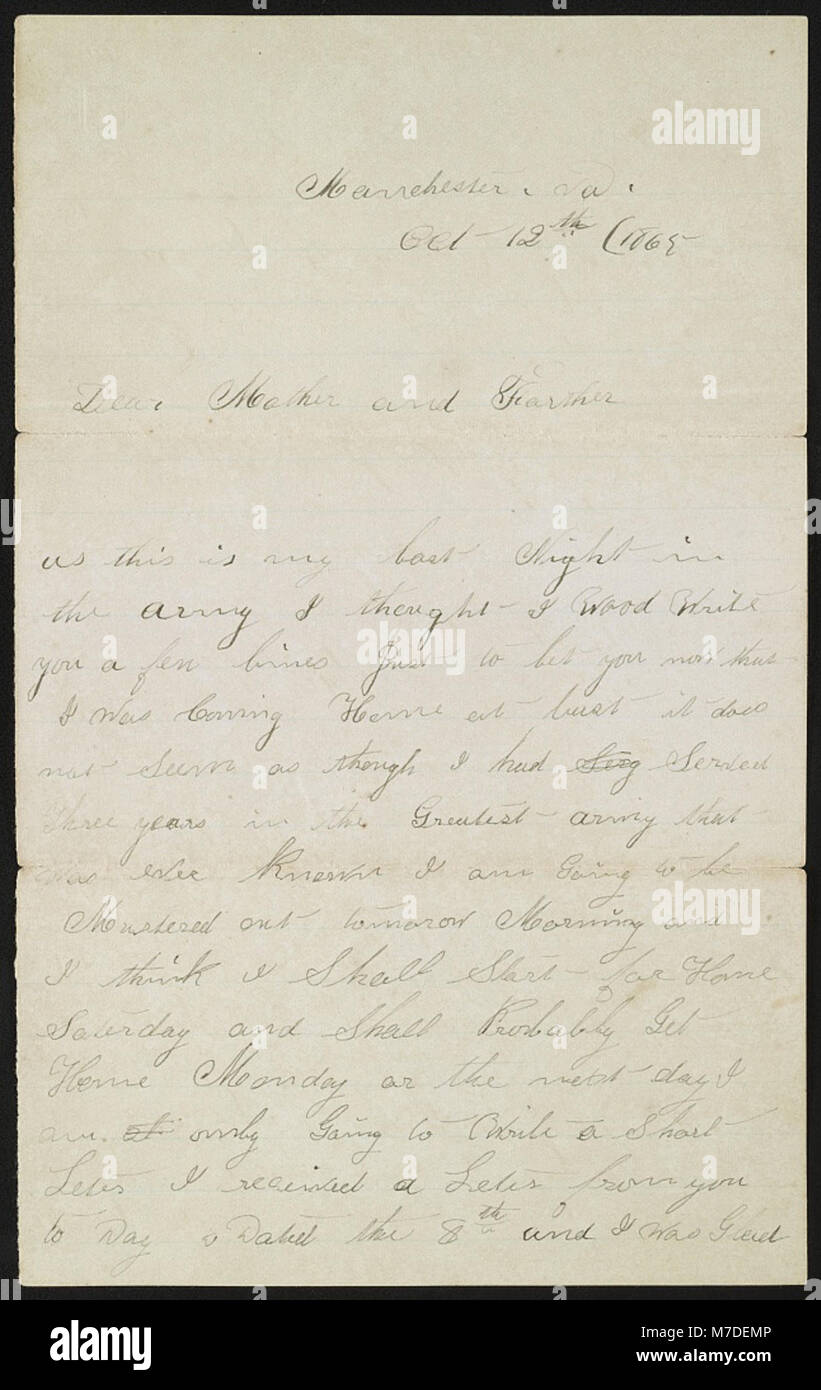 Manchester. Va.
Oct 12th (1865
Dear Mother and Farther
as this is my last Night in
the army I thought I Wood Write
you a few lines Just to let you now that
I Was Coming Home at last it does
not Seem as though I had Served
Three years in the Greatest army that
Was ever Known I am Going to be
Mustered out tomorow Morning and
I think I Shall Start for Home
Saterday and Shall Probably Get
Home Monday or the next day I
am only Going to Write a Short
Leter I received a Leter from you
to Day Dated the 8th and I Was Glad
alamy
a
alamy
Image ID: M7DEMP
www.alamy.com